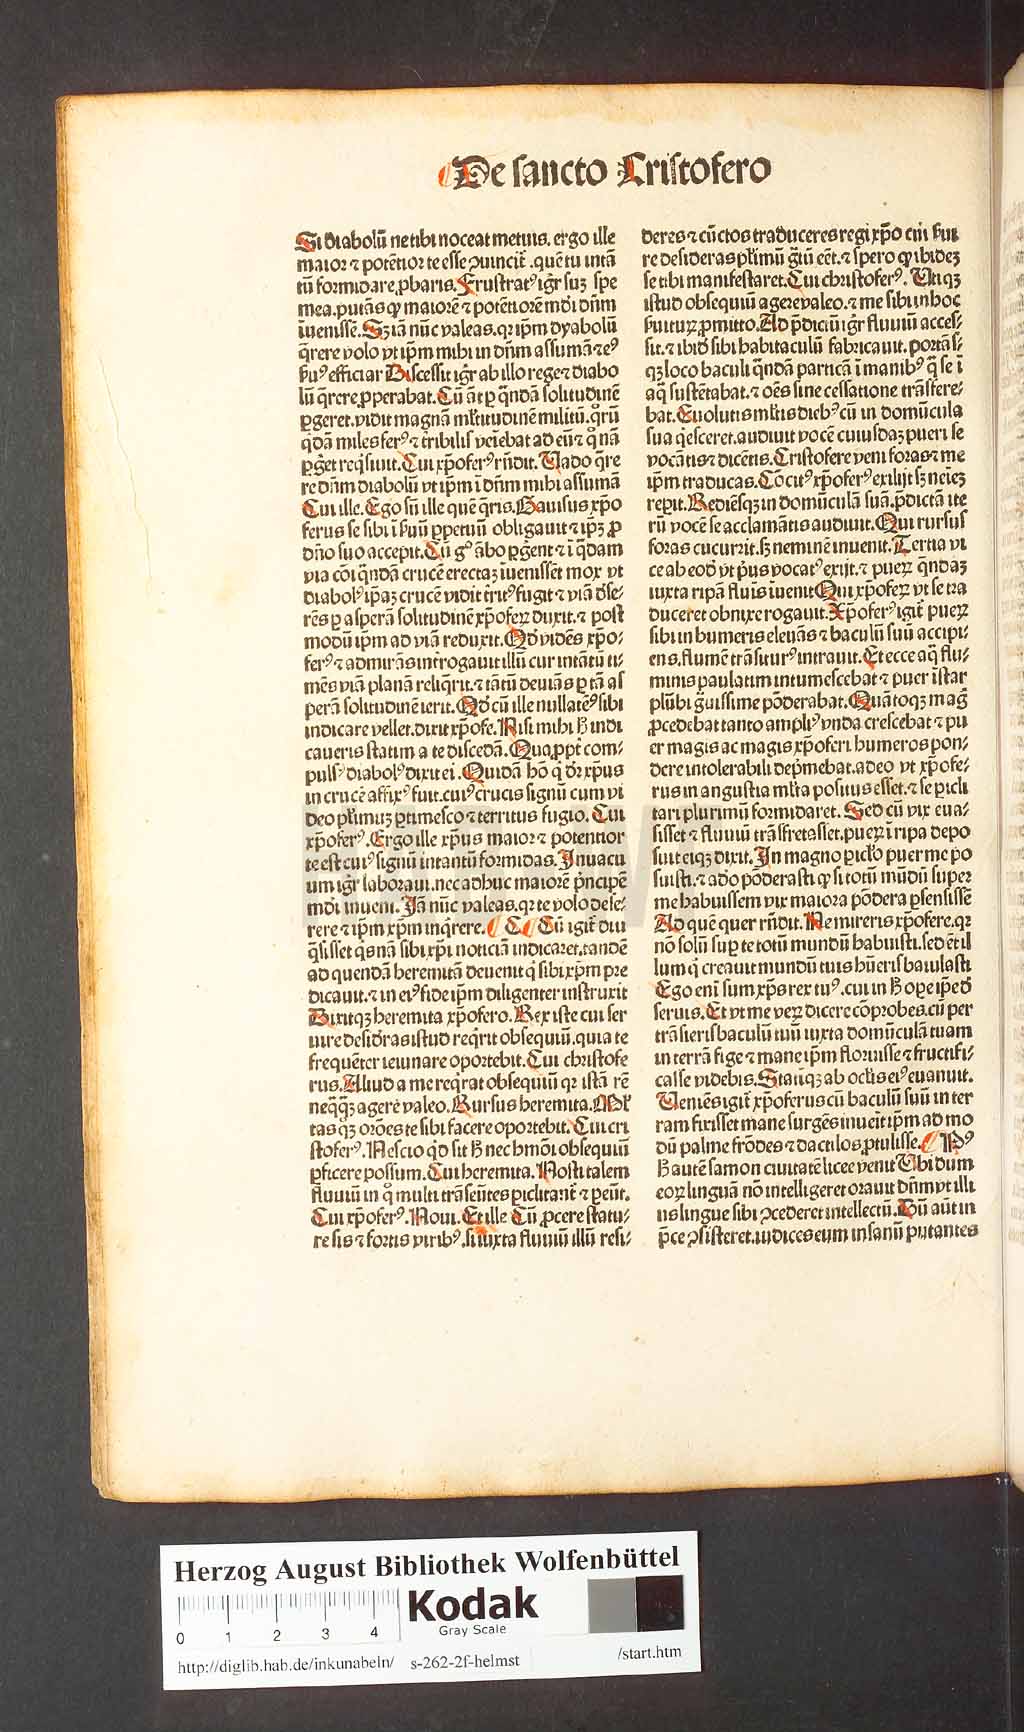 De sancto Cristofero
Si diabolū ne tibi noceat metuis. ergo ille
maior ⁊ potētior te esse ꝯuincit̄. quē tu intā
tū formidare ꝓbaris. Frustratꝰ igr̄ suꝫ spe
mea. putās ꝙ maiorē ⁊ potētiorē mōi dn̄m
īuenissē. Sꝫ iā nūc valeas. qꝛ ip̄m dyabolū
q̄rere volo vt ip̄m mihi in dn̄m assumā ⁊ eꝰ
ẜuꝰ efficiar Discessit igr̄ ab illo rege ⁊ diabo
lū q̄rere ꝓperabat. Cū āt ꝑ q̄ndā solitudinē
ꝑgeret. vidit magnā ml̄titudinē militū. qͦꝝ
q̄dā miles ferꝰ ⁊ tribilis veīebat ad eū ⁊ qͦ nā
ꝑgēt req̄siuit. Cui xp̄oferꝰ rn̄dit. Vado q̄re
re dn̄m diabolū vt ip̄m ī dn̄m mihi assumā
Cui ille. Ego sū ille que q̄ris. Gauisus xp̄o
ferus se sibi ī ẜuū ꝑpetuū obligauit ⁊ ip̄ꝫ ꝓ
dn̄o suo accepit. Cū gͦ ābo ꝑgent ⁊ ī q̄dam
via cōi q̄ndā crucē erectaꝫ īuenisset mox vt
diabolꝰ ip̄aꝫ crucē vidit t̄ritꝰ fugit ⁊ viā d̄se⸗
rēs ꝑ asperā solitudinē xp̄oferꝝ duxit. ⁊ post
modū ip̄m ad viā reduxit. Qd̄ vidēs xp̄o⸗
ferꝰ ⁊ admirās int̄rogauit illū cur intātū ti⸗
mēs viā planā reliq̄rit. ⁊ tātū deuiās ꝑ tā as
perā solitudinē ierit. Qd̄ cū ille nullatēꝰ sibi
indicare vellet. dixit xp̄ofe. Nisi mihi h̄ indi
caueris statim a te discedā. Quaꝓpt̄ com⸗
pulsꝰ diabolꝰ dixit ei. Quidā hō q̄ dr̄ xp̄us
in crucē affixꝰ fuit. cuiꝰ crucis signū cum vi
deo pl̄imuꝫ ꝑtimesco ⁊ territus fugio. Cui
xp̄oferꝰ. Ergo ille xp̄us maior ⁊ potentior
te est cuiꝰ signū intantū formidas. Inuacu
um igr̄ laboraui. nec adhuc maiorē p̄ncipē
mōi inueni. Iā nūc valeas. qꝛ te volo dese⸗
rere ⁊ ip̄m xp̄m inq̄rere. Cū igit̄ diu
q̄sisset qͥs nā sibi xp̄i noticiā indicaret. tandē
ad quendā heremitā deuenit qͥ sibi xp̄m pre
dicauit. ⁊ in eiꝰ fide ip̄m diligenter instruxit
Dixitqꝫ heremita xp̄ofero. Rex iste cui ser
uire desid̄ras istud req̄rit obsequiū. quia te
frequēter ieiunare oportebit. Cui christofe
rus. Aliud a me req̄rat obsequiū qꝛ istā rē
neqͣqͣꝫ agere valeo. Rursus heremita. Ml̄
tas qꝫ orōes te sibi facere oportebit. Cui cri
stoferꝰ. Nescio qͥd sit h̄ nec hmōi obsequiū
ꝑficere possum. Cui heremita. Nosti talem
fluuiū in qͦ multi trāseūtes ꝑiclitant̄ ⁊ ꝑeūt.
Cui xp̄oferꝰ. Noui. Et ille Cū ꝓcere statu⸗
re sis ⁊ fortis viribꝰ. si iuxta fluuiū illū resi⸗
deres ⁊ cūctos traduceres regi xp̄o cui ẜui
re desideras pl̄imū gͣtū eēt. ⁊ spero ꝙ ibidēꝫ
se tibi manifestaret. Cui christoferꝰ. Vtiqꝫ
istud obsequiū agere valeo. ⁊ me sibi in hoc
ẜuituꝝ ꝓmitto. Ad p̄dictū igr̄ fluuiū acces⸗
sit. ⁊ ibid̄ sibi habitaculū fabricauit. portās⸗
qꝫ loco baculi q̄ndā particā ī manibꝰ q̄ se ī
aq̄ sustētabat. ⁊ oēs sine cessatione trāsfere⸗
bat. Euolutis ml̄tis diebꝰ cū in domūcula
sua qͥesceret. audiuit vocē cuiusdaꝫ pueri se
vocātis ⁊ dicētis. Cristofere veni foras ⁊ me
ip̄m traducas. Cōcitꝰ xp̄oferꝰ exilijt sꝫ nēiēꝫ
reꝑit. Rediēsqꝫ in domūculā suā. p̄dictā ite
rū vocē se acclamātis audiuit. Qui rursus
foras cucurrit. sꝫ neminē inuenit. Tertia vi
ce ab eod̄ vt pͥus vocatꝰ exijt. ⁊ pueꝝ q̄ndaꝫ
iuxta ripā fluuij īuenit Qui xp̄oferꝝ vt se tra
duceret obnixe rogauit. Xp̄oferꝰ igit̄ pueꝝ
sibi in humeris eleuās ⁊ baculū suū accipi⸗
ens. flumē trāsiturꝰ intrauit. Et ecce aq̄ flu⸗
minis paulatim intumescebat ⁊ puer īstar
plūbi gͣuissime pōderabat. Quātoqꝫ magͥ
ꝓcedebat tanto ampliꝰ vnda crescebat ⁊ pu
er magis ac magis xp̄oferi humeros pon⸗
dere intolerabili dep̄mebat. adeo vt xp̄ofe⸗
rus in angustia ml̄ta positus esset. ⁊ se ꝑicli
tari plurimū formidaret. Sed cū vix eua⸗
sisset ⁊ fluuiū trāsfretasset. pueꝝ ī ripa depo
suit eiqꝫ dixit. In magno ꝑicl̄o puer me po
suisti. ⁊ adeo pōderasti ꝙ si totū mūdū super
me habuissem vix maiora pōdera ꝑsensissē
Ad quē puer rn̄dit. Ne mireris xp̄ofere. qꝛ
nō solū suꝑ te totū mundū habuisti. sed et il
lum qͥ creauit mundū tuis hūeris baiulasti
Ego eni sum xp̄s rex tuꝰ. cui in h̄ oꝑe ip̄e d̄
seruis. Et vt me veꝝ dicere cōprobes. cū per
trāsieris baculū tuū iuxta domūculā tuam
in terrā fige ⁊ mane ip̄m floruisse ⁊ fructifi⸗
casse videbis. Statīqꝫ ab ocl̄is eiꝰ euanuit.
Veniēs igit̄ xp̄oferus cū baculū suū in ter
ram fixisset mane surgēs inueīt ip̄m ad mo
dū palme frōdes ⁊ dactilos ꝓtulisse. Pꝰ
h̄ autē samon ciuitatē licee venit Vbi dum
eoꝝ linguā nō intelligeret orauit dn̄m vt illi
us lingue sibi ꝯcederet intellectū. Dū aūt in
p̄ce ꝑsisteret. iudices eum insanū putantes
Herzog August Bibliothek Wolfenbüttel
0 1 2 3 4
Kodak
Gray Scale
http://diglib.hab.de/inkunabeln/ s-262-2f-helmst /start.htm